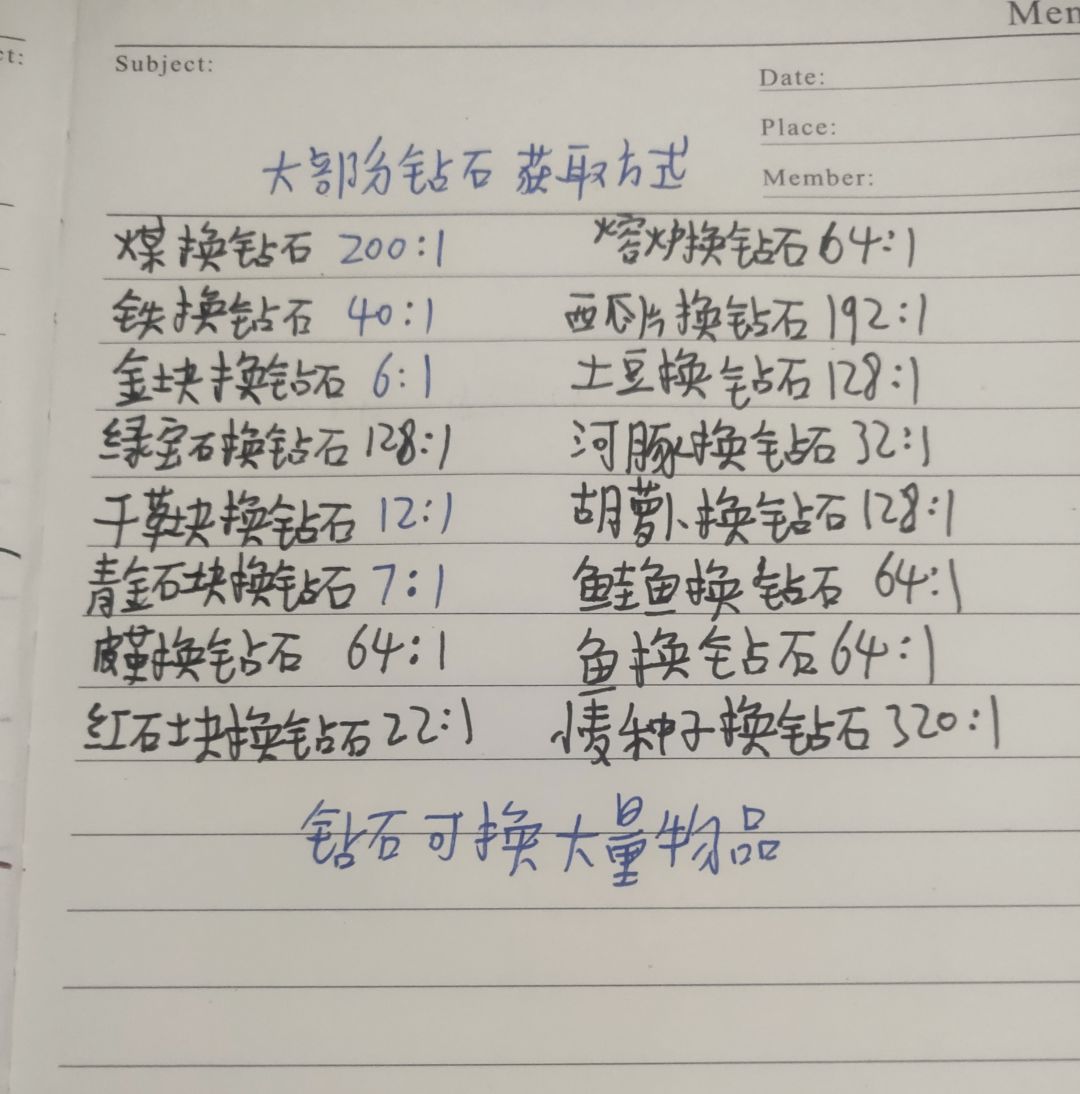 Mem
ct:
Subject:
Date:
Place:
Member:
大部分钻石获取方式
煤换钻石 200:1 熔炉换钻石 64:1
铁换钻石 40:1 西瓜片换钻石 192:1
金块换钻石 6:1 土豆换钻石 128:1
绿宝石换钻石 128:1 河豚换钻石 32:1
干草块换钻石 12:1 胡萝卜换钻石 128:1
青金石块换钻石 7:1 鲑鱼换钻石 64:1
皮革换钻石 64:1 鱼换钻石 64:1
红石块换钻石 22:1 小麦种子换钻石 320:1
钻石可换大量物品